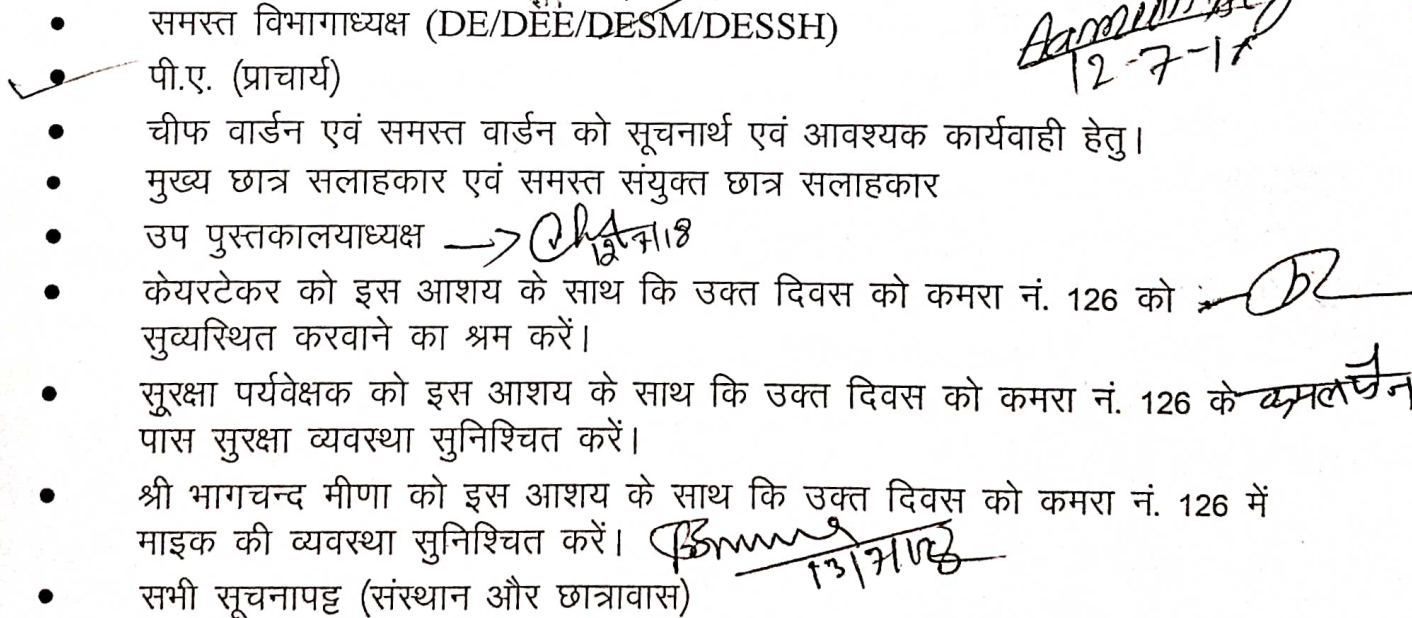 • समस्त विभागाध्यक्ष (DE/DEE/DESM/DESSH)
12-7-18
• पी.ए. (प्राचार्य)
• चीफ वार्डन एवं समस्त वार्डन को सूचनार्थ एवं आवश्यक कार्यवाही हेतु।
• मुख्य छात्र सलाहकार एवं समस्त संयुक्त छात्र सलाहकार
• उप पुस्तकालयाध्यक्ष → 12/7/18
• केयरटेकर को इस आशय के साथ कि उक्त दिवस को कमरा नं. 126 को
सुव्यस्थित करवाने का श्रम करें।
• सुरक्षा पर्यवेक्षक को इस आशय के साथ कि उक्त दिवस को कमरा नं. 126 के
पास सुरक्षा व्यवस्था सुनिश्चित करें।
• श्री भागचन्द मीणा को इस आशय के साथ कि उक्त दिवस को कमरा नं. 126 में
माइक की व्यवस्था सुनिश्चित करें। 13/7/18
• सभी सूचनापट्ट (संस्थान और छात्रावास)